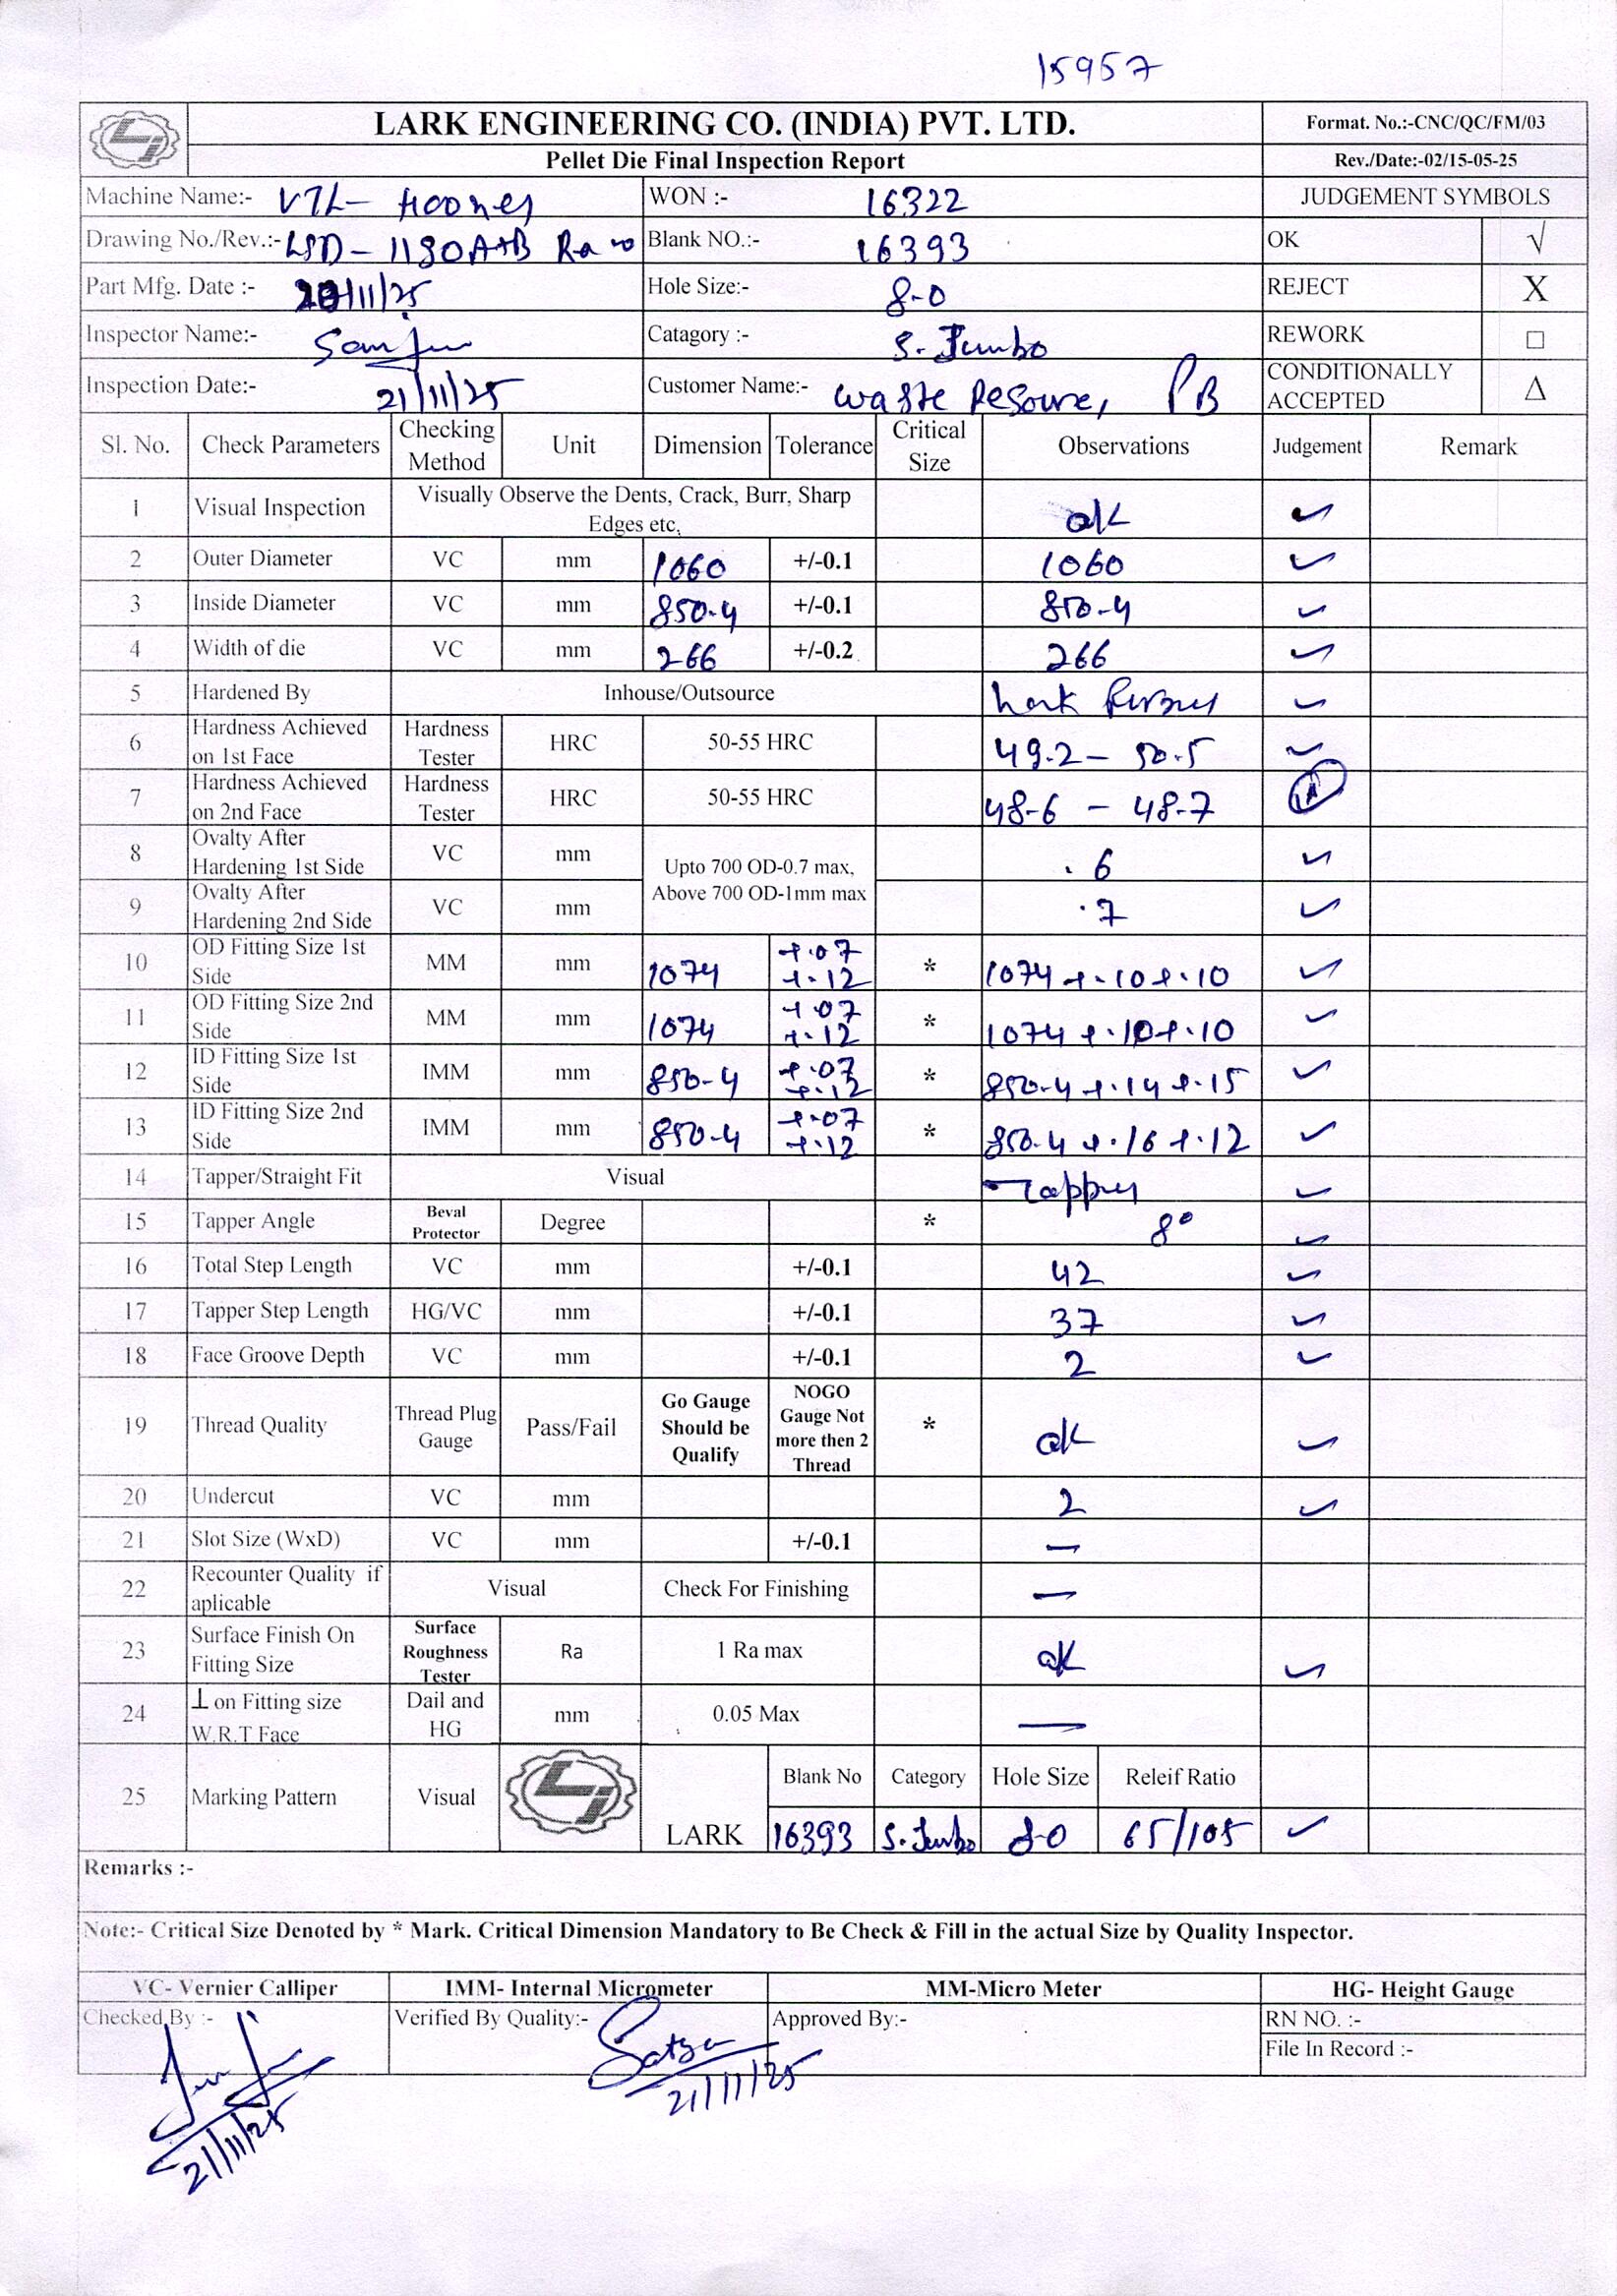 15957
LARK ENGINEERING CO. (INDIA) PVT. LTD. Format. No.:-CNC/QC/FM/03
Pellet Die Final Inspection Report Rev./Date:-02/15-05-25
Machine Name:- VTL- WON :- 16322 JUDGEMENT SYMBOLS
Drawing No./Rev.:- LSD-1180A+B Blank NO.:- 16393 OK √
Part Mfg. Date :- /11/25 Hole Size:- 8-0 REJECT X
Inspector Name:- Catagory :- S. Jumbo REWORK □
Inspection Date:- 21/11/25 Customer Name:- Waste PB CONDITIONALLY ACCEPTED Δ
Sl. No. Check Parameters Checking Method Unit Dimension Tolerance Critical Size Observations Judgement Remark
1 Visual Inspection Visually Observe the Dents, Crack, Burr, Sharp Edges etc, ok ✓
2 Outer Diameter VC mm 1060 +/-0.1 1060 ✓
3 Inside Diameter VC mm 850.4 +/-0.1 850-4 ✓
4 Width of die VC mm 266 +/-0.2 266 ✓
5 Hardened By Inhouse/Outsource Lark ✓
6 Hardness Achieved on 1st Face Hardness Tester HRC 50-55 HRC 49.2 - 50.5 ✓
7 Hardness Achieved on 2nd Face Hardness Tester HRC 50-55 HRC 48-6 - 48-7
8 Ovalty After Hardening 1st Side VC mm Upto 700 OD-0.7 max, Above 700 OD-1mm max .6 ✓
9 Ovalty After Hardening 2nd Side VC mm .7 ✓
10 OD Fitting Size 1st Side MM mm 1074 +.07 +.12 * 1074 +.10 +.10 ✓
11 OD Fitting Size 2nd Side MM mm 1074 +.07 +.12 * 1074 +.10 +.10 ✓
12 ID Fitting Size 1st Side IMM mm 850-4 +.07 +.12 * 850-4 +.14 +.15 ✓
13 ID Fitting Size 2nd Side IMM mm 850-4 +.07 +.12 * 850.4 +.16 +.12 ✓
14 Tapper/Straight Fit Visual Tapper ✓
15 Tapper Angle Beval Protector Degree * 8° ✓
16 Total Step Length VC mm +/-0.1 42 ✓
17 Tapper Step Length HG/VC mm +/-0.1 37 ✓
18 Face Groove Depth VC mm +/-0.1 2 ✓
19 Thread Quality Thread Plug Gauge Pass/Fail Go Gauge Should be Qualify NOGO Gauge Not more then 2 Thread * ok ✓
20 Undercut VC mm 2 ✓
21 Slot Size (WxD) VC mm +/-0.1 —
22 Recounter Quality if aplicable Visual Check For Finishing —
23 Surface Finish On Fitting Size Surface Roughness Tester Ra 1 Ra max ok ✓
24 ⊥ on Fitting size W.R.T Face Dail and HG mm 0.05 Max —
25 Marking Pattern Visual LARK Blank No Category Hole Size Releif Ratio
16393 S. Jumbo 8-0 65/105 ✓
Remarks :-
Note:- Critical Size Denoted by * Mark. Critical Dimension Mandatory to Be Check & Fill in the actual Size by Quality Inspector.
VC- Vernier Calliper IMM- Internal Micrometer MM-Micro Meter HG- Height Gauge
Checked By :- Verified By Quality:- Approved By:- RN NO. :-
File In Record :-
21/11/25
21/11/25